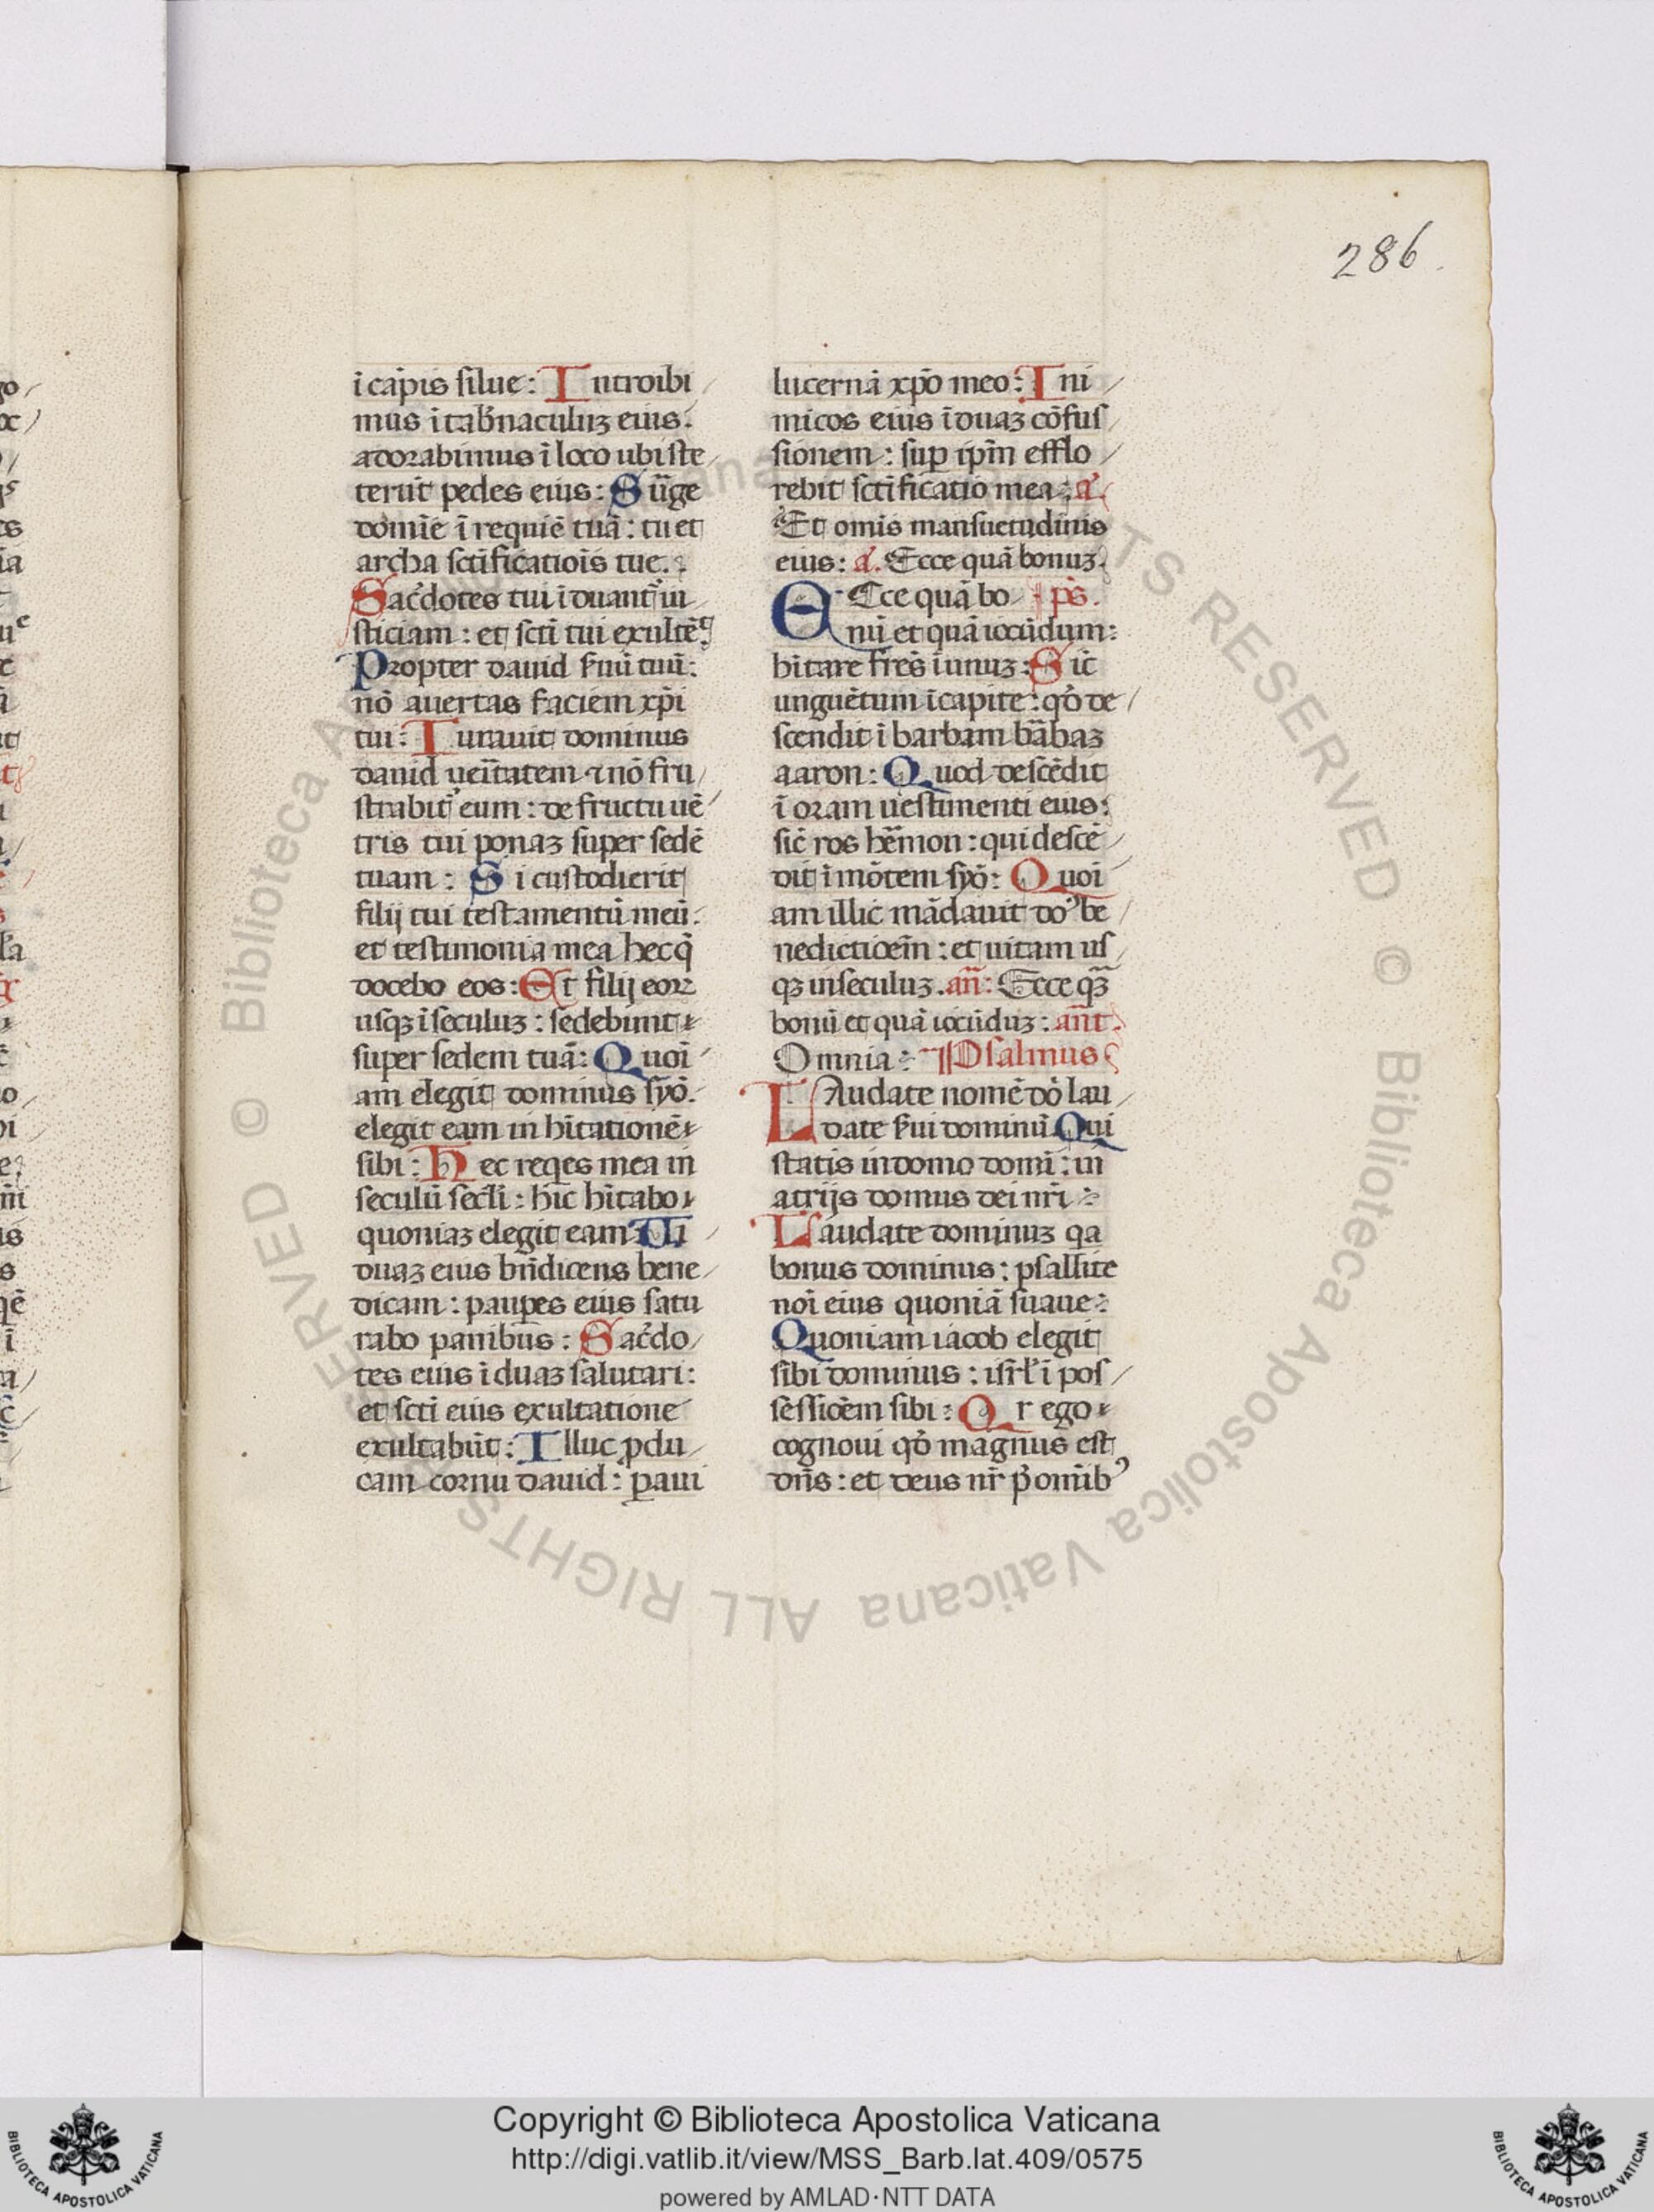 286.
ı̄ cāpis silue : Introibi
mus ı̄ tab̄naculuꝫ eius.
adorabimus ı̄ loco ubi ste
terūt pedes eius : Sūge
domı̄e ı̄ requiē tuā : tu et
archa sctı̄ficatiōis tue.
Sac̄dotes tui ı̄duant᷑ iu
sticiam : et sctı̄ tui exultēt
Propter dauid ẜuū tuū :
nō auertas faciem xp̄i
tui : Iurauit dominus
dauid ueı̄tatem ⁊ nō fru
strabit᷑ eum : de fructu uē
tris tui ponaꝫ super sedē
tuam : Si custodierit
filij tui testamentū meū :
et testimonia mea hec q̄
docebo eos : Et filij eoꝝ
usqꝫ ı̄ seculuꝫ : sedebunt
super sedem tuā : Quoı̄
am elegit dominus syō :
elegit eam in hı̄tationē
sibi : Hec reqes mea in
seculū seclı̄ : hic hı̄tabo
quoniaꝫ elegit eam : Ui
duaꝫ eius bn̄dicens bene
dicam : paupes eius satu
rabo panibus : Sac̄do
tes eius ı̄duaꝫ salutari :
et sctı̄ eius exultatione
exultabūt : Illuc ꝓdu
cam cornu dauid : ꝑaui
lucernā xp̄o meo : Ini
micos eius ı̄duaꝫ cōfus
sionem : suꝑ ip̄m efflo
rebit sctı̄ficatio mea : a.
Et omı̄s mansuetudinis
eius : a. Ecce quā bonuꝫ.
ECce quā bo ps̄.
nū et quā iocūdum :
hı̄tare fr̄es ı̄ unuꝫ : Sic̄
unguētum ı̄ capite : qd̄ de
scendit ı̄ barbam bābaꝫ
aaron : Quod descēdit
ı̄ oram uestimenti eius :
sic̄ ros hēmon : qui descē
dit ı̄ mōtem syō : Quoı̄
am illic mādauit do᷑ be
nedictiōem : et uitam us
qꝫ in seculuꝫ . an̄ : Ecce qꝫ̄
bonū et quā iocūduꝫ : an̄t.
Omnia : Psalmus
LAudate nomē do᷑ lau
date ẜui dominū. Qui
statis in domo domı̄ : in
atrijs domus dei nr̄i :
Laudate dominuꝫ qa
bonus dominus : psallite
noı̄ eius quoniā suaue :
Quoniam iacob elegit
sibi dominus : isr̄ł ı̄ pos
sessiōem sibi : Qr ego
cognoui qd̄ magnus est
dn̄s : et deus nr̄ p̄ omı̄bꝰ
© Biblioteca Apostolica Vaticana ALL RIGHTS RESERVED © Biblioteca Apostolica Vaticana ALL RIGHTS RESERVED
Copyright © Biblioteca Apostolica Vaticana
http://digi.vatlib.it/view/MSS_Barb.lat.409/0575
powered by AMLAD·NTT DATA
BIBLIOTECA APOSTOLICA VATICANA
BIBLIOTECA APOSTOLICA VATICANA